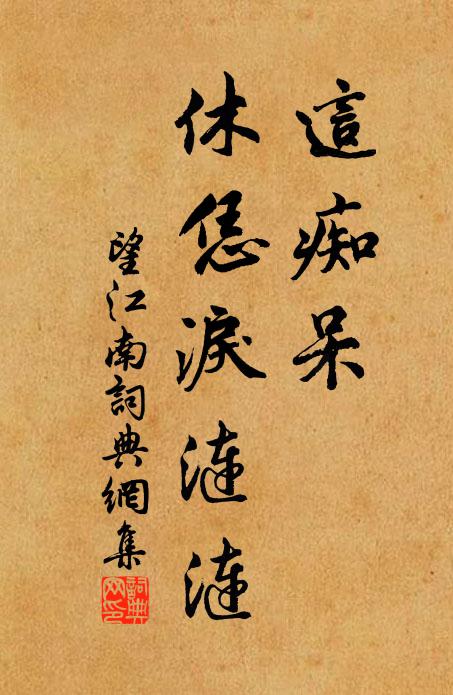 這痴呆
休恁淚漣漣
望江南詞典網集
詞典
网印